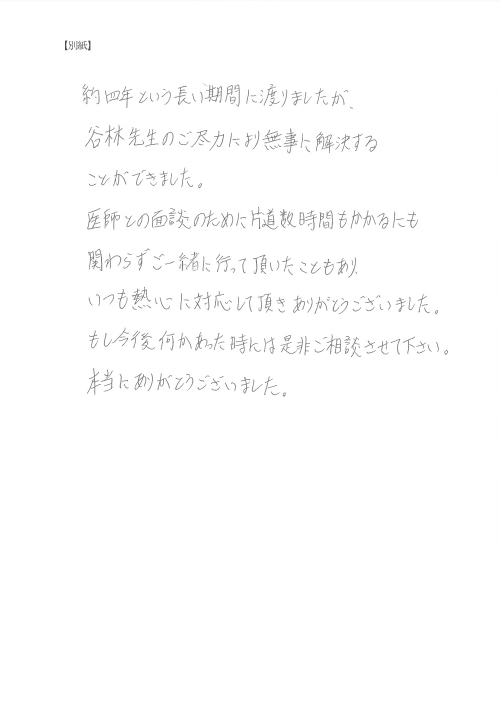 【別紙】
約四年という長い期間に渡りましたが、
谷林先生のご尽力により無事に解決する
ことができました。
医師との面談のために片道数時間もかかるにも
関わらずご一緒に行って頂いたこともあり、
いつも熱心に対応して頂きありがとうございました。
もし今後何かあった時には是非ご相談させて下さい。
本当にありがとうございました。